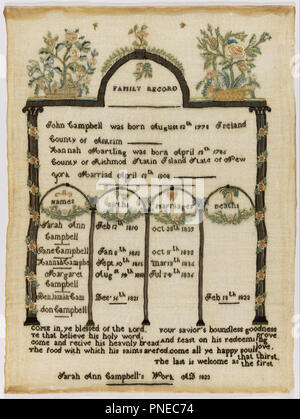 FAMILY RECORD
John Campbell was born August 12th 1778 Ireland
County of Antrim
Hannah Martling was born April 11th 1785
County of Richmod Statin Island State of New
York Married April 12th 1808
Names Births Marriages Deaths
Sarah Ann Feb 12th 1810 Oct 28th 1829
Campbell
Jane Campbell Jan 9th 1812
Hannah Campbel Sept 10th 1815
Margaret Aug 29th July 24th 1834
Campbell
Benjamin Cam Dec 31th 1821 Feb 15th 1822
don Campbell
Come in ye blessed of the Lord, your savior's boundless goodness
ye that believe his holy word, prove,
come and recive his heavenly bread And feast on his redeeming love
The food with which his saints are fed. come all ye happy souls that thirst,
The last is welcome as the first
Sarah Ann Campbell's Work AD 1822
alamy
Image ID: PNEC74
www.alamy.com